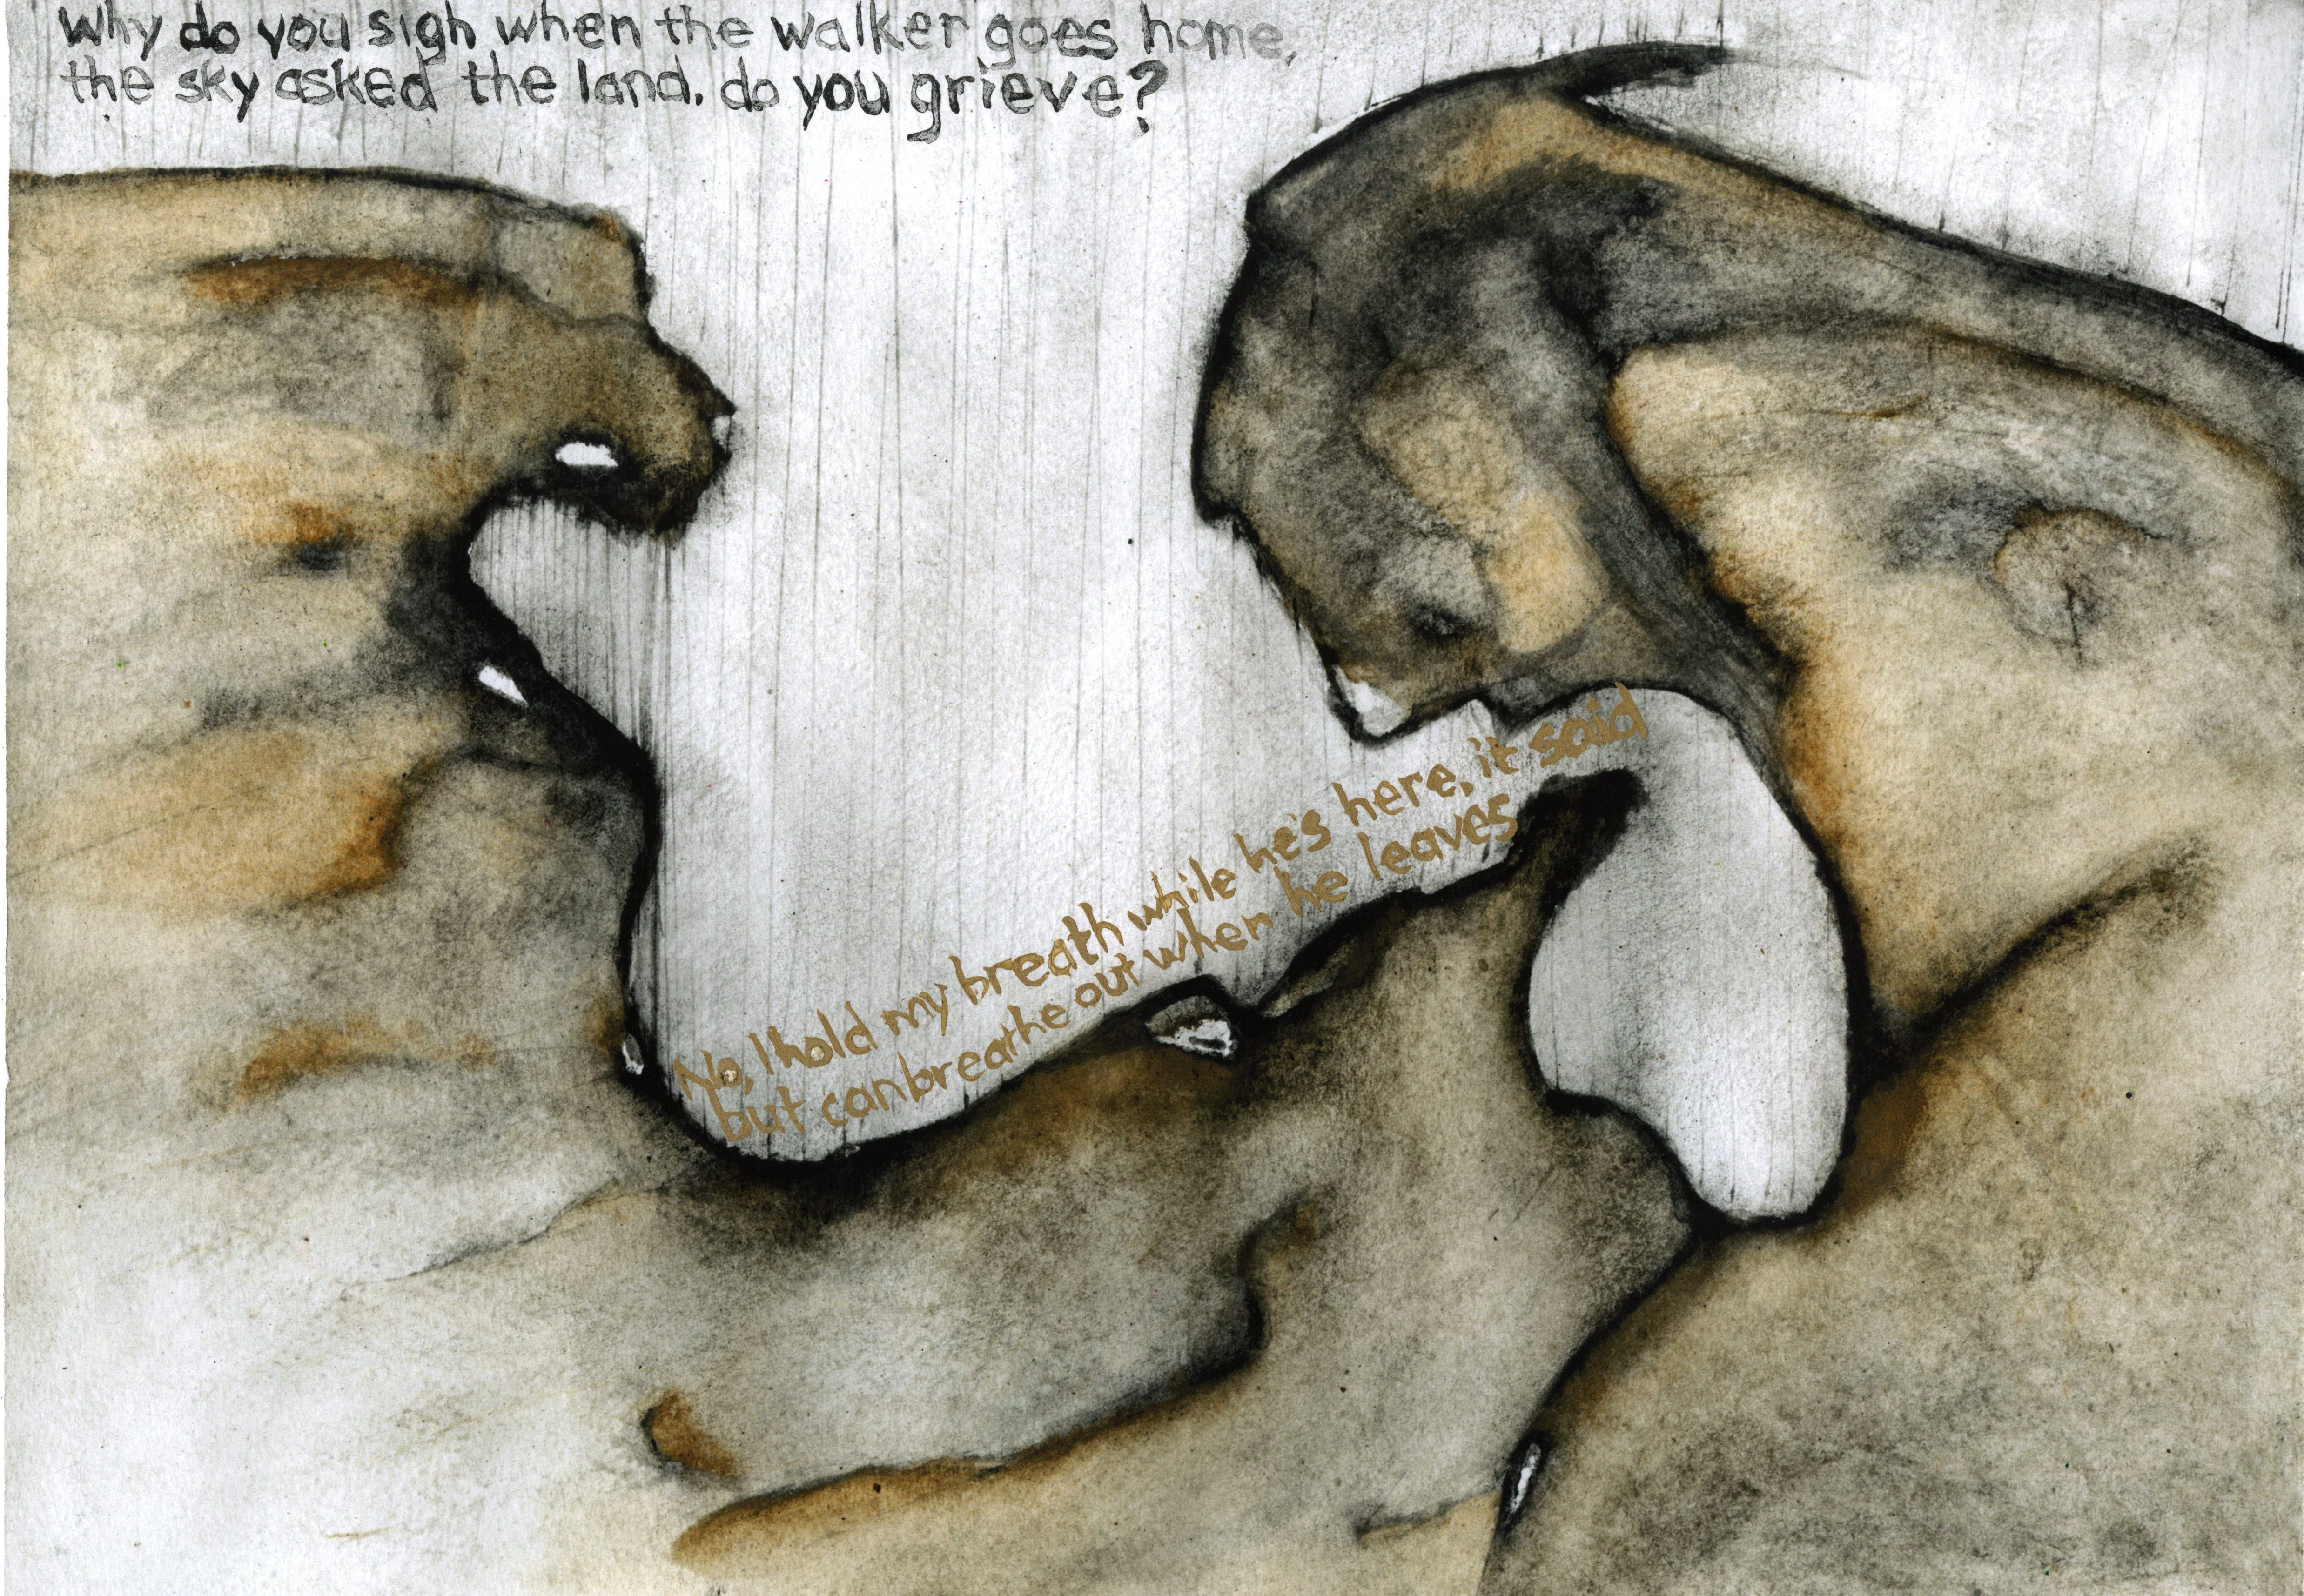 Why do you sigh when the walker goes home,
the sky asked the land. do you grieve?
No, I hold my breath while he's here, it said
but can breathe out when he leaves